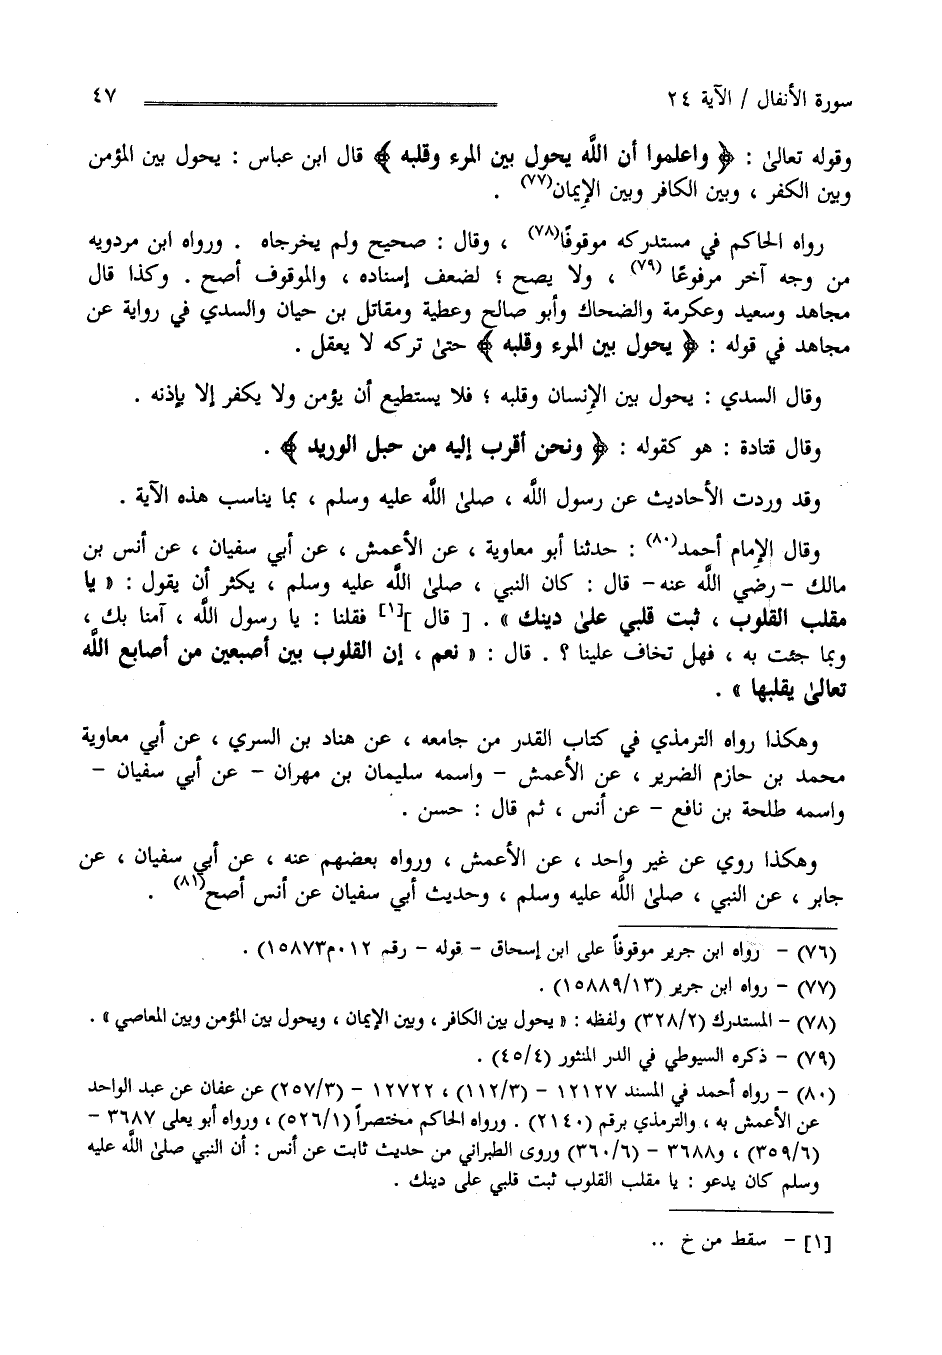 سورة الأنفال / الآية ٢٤
٤٧
وقوله تعالىٰ : ﴿ واعلموا أن اللَّه يحول بين المرء وقلبه ﴾ قال ابن عباس : يحول بين المؤمن
وبين الكفر ، وبين الكافر وبين الإيمان(٧٧) .
رواه الحاكم في مستدركه موقوفًا(٧٨) ، وقال : صحيح ولم يخرجاه . ورواه ابن مردويه
من وجه آخر مرفوعًا (٧٩) ، ولا يصح ؛ لضعف إسناده ، والموقوف أصح . وكذا قال
مجاهد وسعيد وعكرمة والضحاك وأبو صالح وعطية ومقاتل بن حيان والسدي في رواية عن
مجاهد في قوله : ﴿ يحول بين المرء وقلبه ﴾ حتىٰ تركه لا يعقل .
وقال السدي : يحول بين الإنسان وقلبه ؛ فلا يستطيع أن يؤمن ولا يكفر إلا بإذنه .
وقال قتادة : هو كقوله : ﴿ ونحن أقرب إليه من حبل الوريد ﴾ .
وقد وردت الأحاديث عن رسول اللَّه ، صلىٰ اللَّه عليه وسلم ، بما يناسب هذه الآية .
وقال الإمام أحمد(٨٠) : حدثنا أبو معاوية ، عن الأعمش ، عن أبي سفيان ، عن أنس بن
مالك - رضي اللَّه عنه - قال : كان النبي ، صلىٰ اللَّه عليه وسلم ، يكثر أن يقول : « يا
مقلب القلوب ، ثبت قلبي علىٰ دينك » . [ قال ][١] فقلنا : يا رسول اللَّه ، آمنا بك ،
وبما جئت به ، فهل تخاف علينا ؟ . قال : « نعم ، إن القلوب بين أصبعين من أصابع اللَّه
تعالىٰ يقلبها » .
وهكذا رواه الترمذي في كتاب القدر من جامعه ، عن هناد بن السري ، عن أبي معاوية
محمد بن حازم الضرير ، عن الأعمش - واسمه سليمان بن مهران - عن أبي سفيان -
واسمه طلحة بن نافع - عن أنس ، ثم قال : حسن .
وهكذا روي عن غير واحد ، عن الأعمش ، ورواه بعضهم عنه ، عن أبي سفيان ، عن
جابر ، عن النبي ، صلىٰ اللَّه عليه وسلم ، وحديث أبي سفيان عن أنس أصح(٨١) .
(٧٦) - رواه ابن جرير موقوفاً على ابن إسحاق - قوله - رقم ١٢٠م١٥٨٧٣) .
(٧٧) - رواه ابن جرير (١٥٨٨٩/١٣) .
(٧٨) - المستدرك (٣٢٨/٢) ولفظه : « يحول بين الكافر ، وبين الإيمان ، ويحول بين المؤمن وبين المعاصي » .
(٧٩) - ذكره السيوطي في الدر المنثور (٤٥/٤) .
(٨٠) - رواه أحمد في المسند ١٢١٢٧ - (١١٢/٣) ، ١٢٧٢٢ - (٢٥٧/٣) عن عفان عن عبد الواحد
عن الأعمش به ، والترمذي برقم (٢١٤٠) . ورواه الحاكم مختصراً (٥٢٦/١) ، ورواه أبو يعلى ٣٦٨٧ -
(٣٥٩/٦) ، و٣٦٨٨ - (٣٦٠/٦) وروى الطبراني من حديث ثابت عن أنس : أن النبي صلىٰ اللَّه عليه
وسلم كان يدعو : يا مقلب القلوب ثبت قلبي على دينك .
[١] - سقط من خ ..